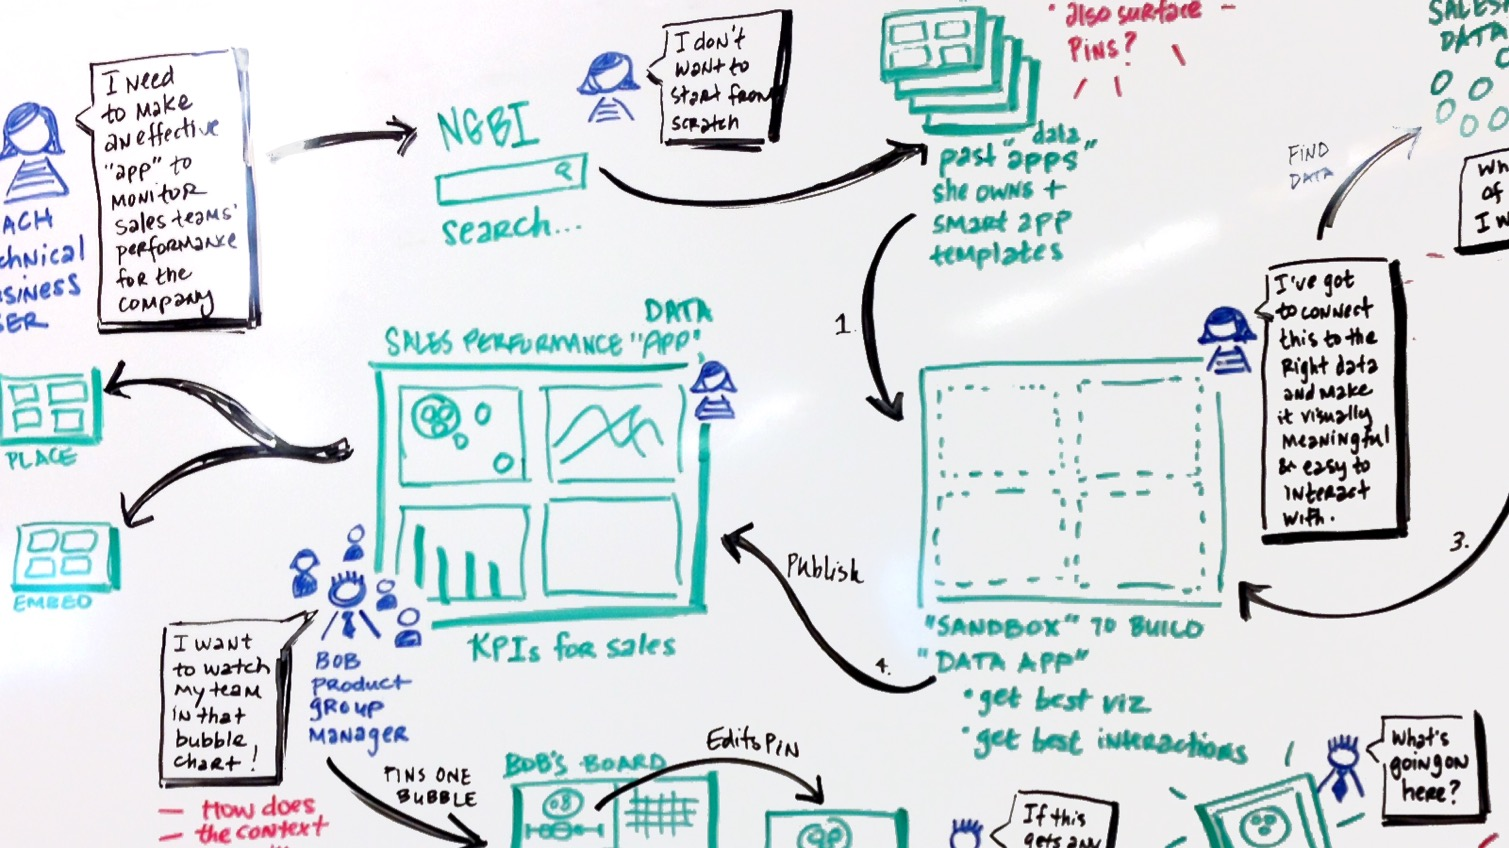 I need
to make
an effective
"app" to
monitor
sales teams'
performance
for the
company
NGBI
search...
I don't
want to
start from
scratch
data
past "apps"
she owns +
smart app
templates
• also surface
Pins?
DATA
FIND
DATA
I've got
to connect
this to the
Right data
and make
it visually
meaningful
& easy to
interact
with.
1.
3.
DATA
SALES PERFORMANCE "APP"
KPIs for sales
PLACE
EMBED
Publish
4.
"SANDBOX" TO BUILD
"DATA APP"
• get best viz
• get best interactions
I want
to watch
my team
in that
bubble
chart!
BOB
product
group
manager
PINS ONE
BUBBLE
How does
the context
BOB'S BOARD
Edits Pin
If this
gets any
What's
going on
here?